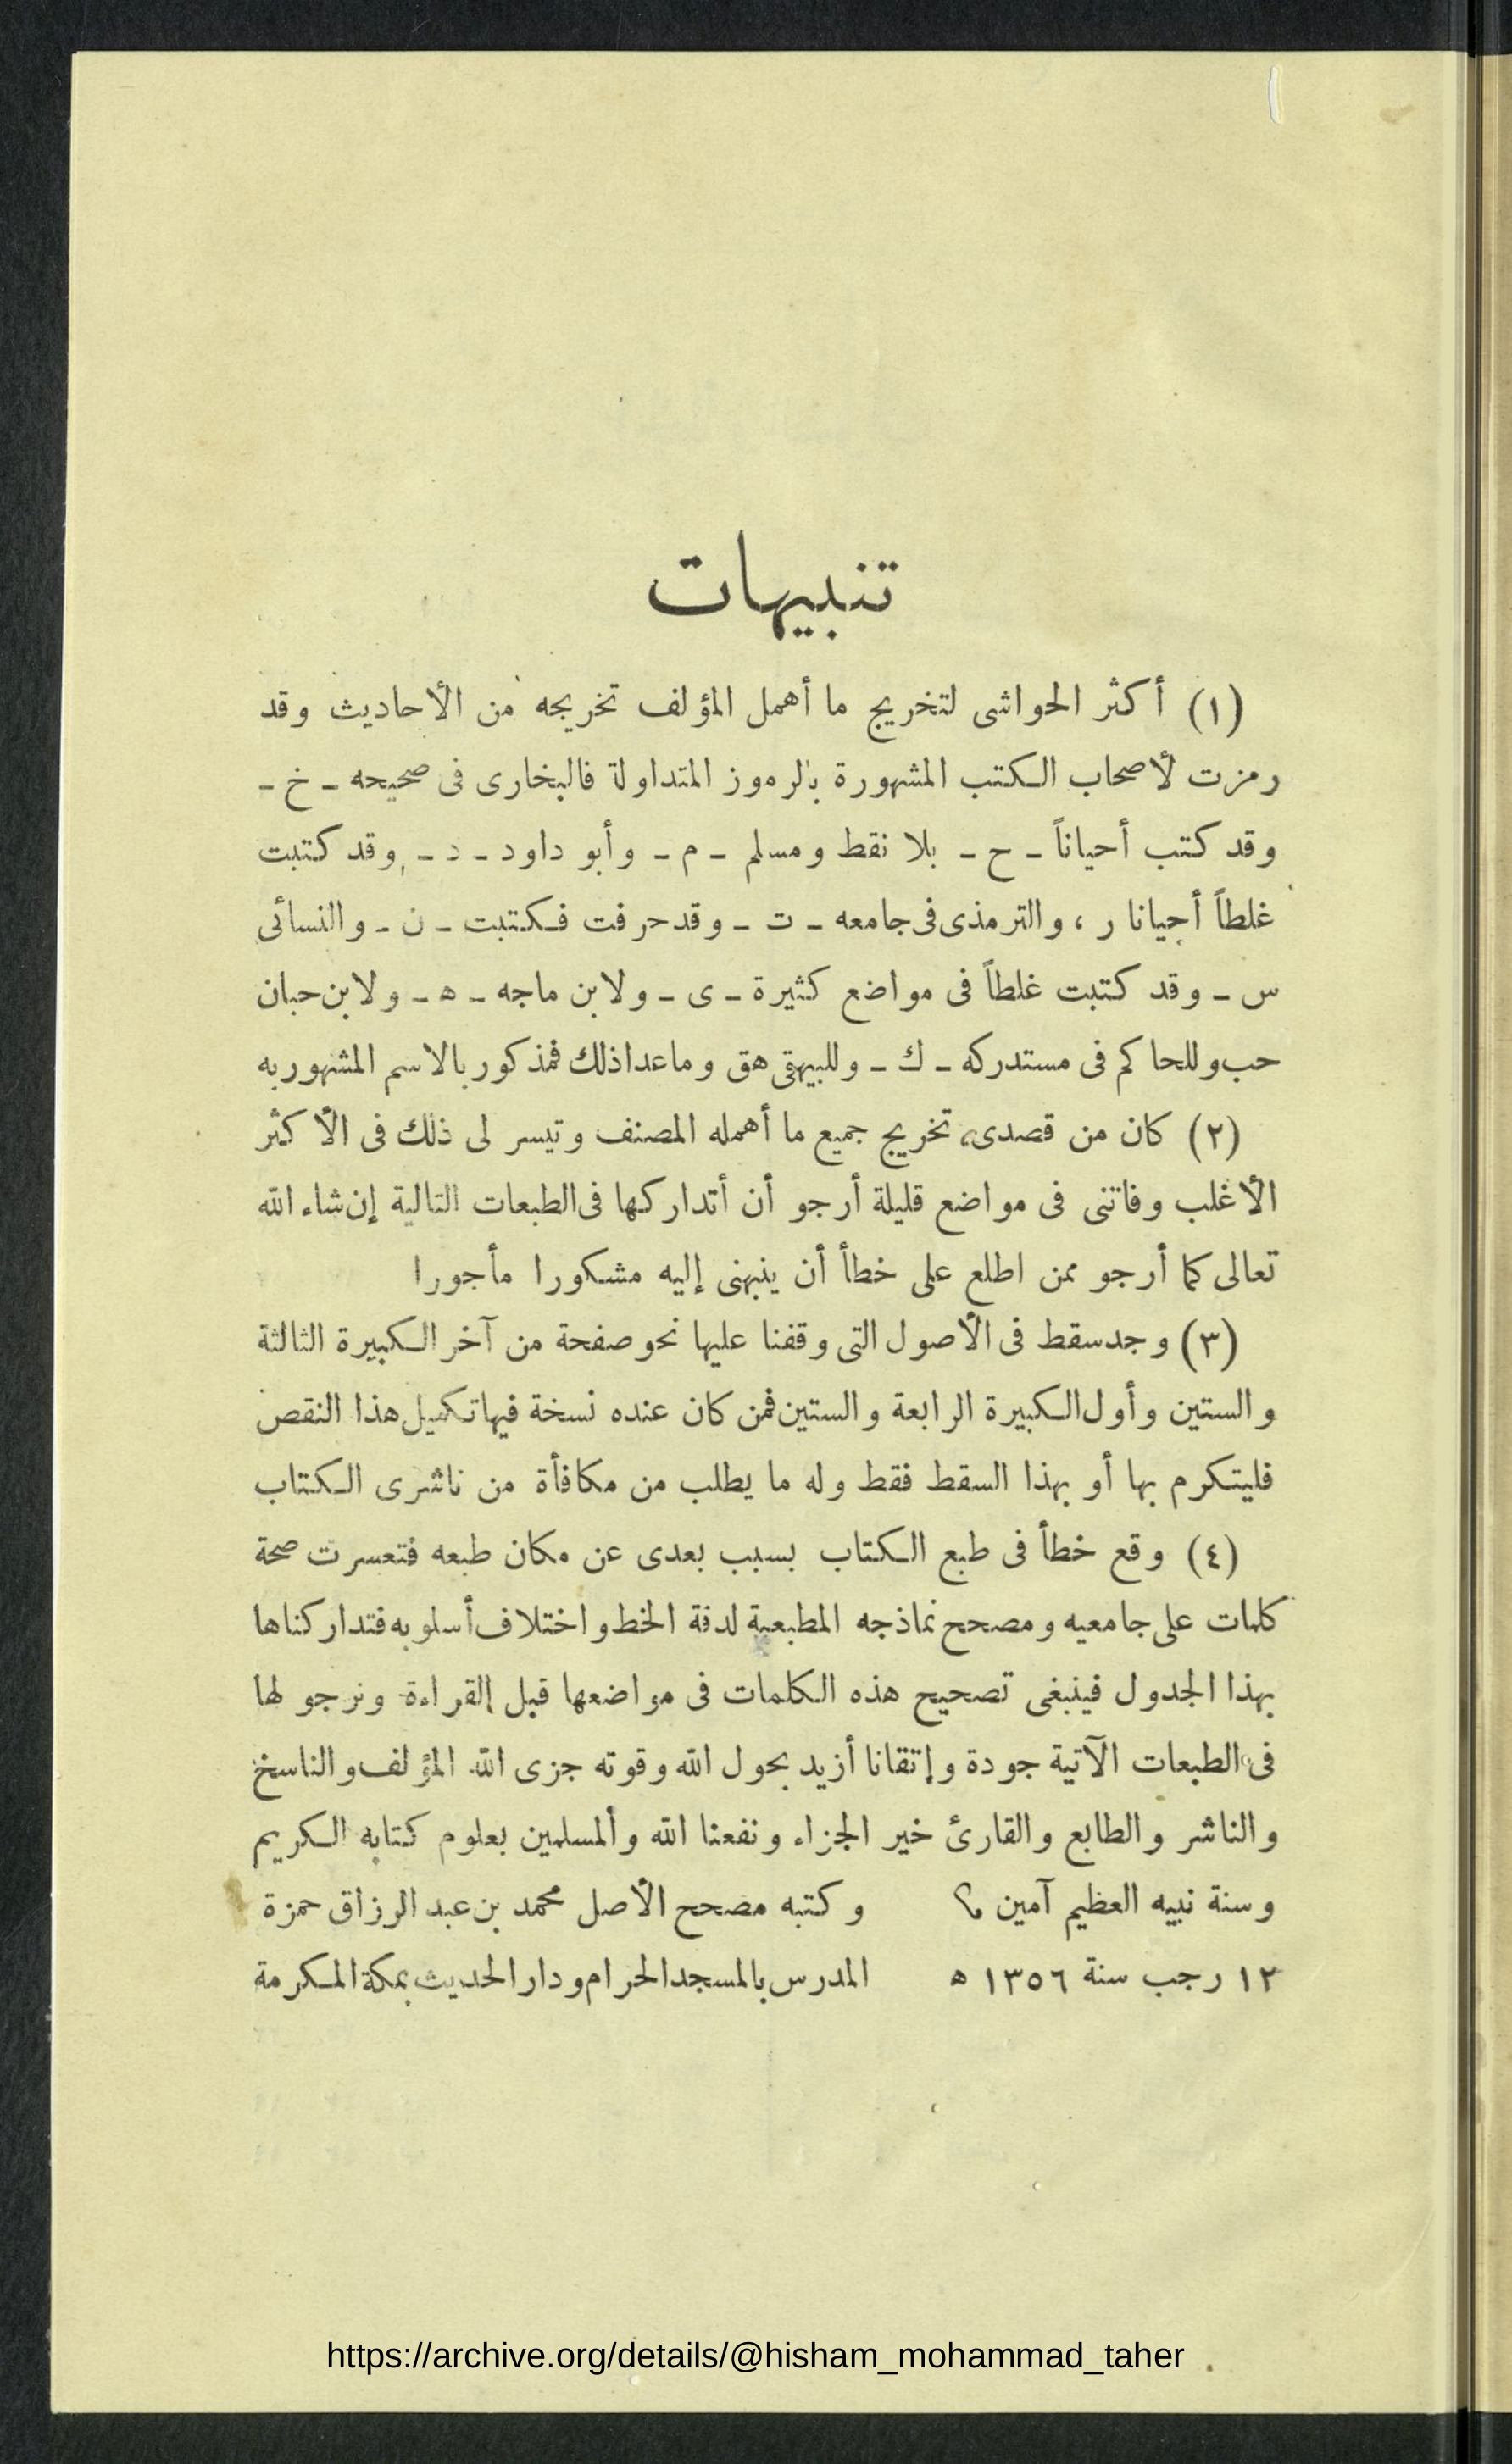 تنبيهات
(١) أكثر الحواشى لتخريج ما أهمل المؤلف تخريجه من الأحاديث وقد
رمزت لأصحاب الكتب المشهورة بالرموز المتداولة فالبخارى فى صحيحه ـ خ ـ
وقد كتب أحياناً ـ ح ـ بلا نقط ومسلم ـ م ـ وأبو داود ـ د ـ وقد كتبت
غلطاً أحيانا ر ، والترمذى فى جامعه ـ ت ـ وقد حرفت فكتبت ـ ن ـ والنسائى
س ـ وقد كتبت غلطاً فى مواضع كثيرة ـ ى ـ ولابن ماجه ـ ه ـ ولابن حبان
حب وللحاكم فى مستدركه ـ ك ـ وللبيهقى هق وماعدا ذلك فمذكور بالاسم المشهور به
(٢) كان من قصدى تخريج جميع ما أهمله المصنف وتيسر لى ذلك فى الأكثر
الأغلب وفاتنى فى مواضع قليلة أرجو أن أتداركها فى الطبعات التالية إن شاء الله
تعالى كما أرجو ممن اطلع على خطأ أن ينبهنى إليه مشكورا مأجورا
(٣) وجد سقط فى الأصول التى وقفنا عليها نحو صفحة من آخر الكبيرة الثالثة
والستين وأول الكبيرة الرابعة والستين فمن كان عنده نسخة فيها تكميل هذا النقص
فليتكرم بها أو بهذا السقط فقط وله ما يطلب من مكافأة من ناشرى الكتاب
(٤) وقع خطأ فى طبع الكتاب بسبب بعدى عن مكان طبعه فتعسرت صحة
كلمات على جامعيه ومصحح نماذجه المطبعية لدقة الخط واختلاف أسلوبه فتداركناها
بهذا الجدول فينبغى تصحيح هذه الكلمات فى مواضعها قبل القراءة ونرجو لها
فى الطبعات الآتية جودة وإتقانا أزيد بحول الله وقوته جزى الله المؤلف والناسخ
والناشر والطابع والقارئ خير الجزاء ونفعنا الله والمسلمين بعلوم كتابه الكريم
وسنة نبيه العظيم آمين وكتبه مصحح الأصل محمد بن عبد الرزاق حمزة
١٢ رجب سنة ١٣٥٦ ه المدرس بالمسجد الحرام ودار الحديث بمكة المكرمة
https://archive.org/details/@hisham_mohammad_taher